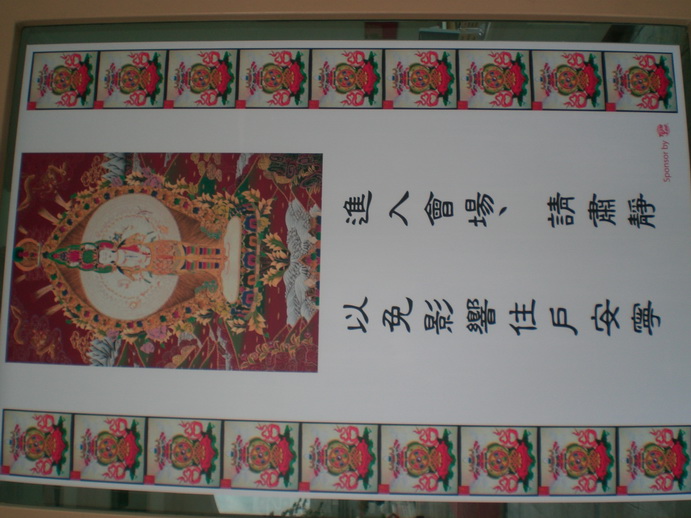 進入會場、請肅靜
以免影響住戶安寧
Sponsor by